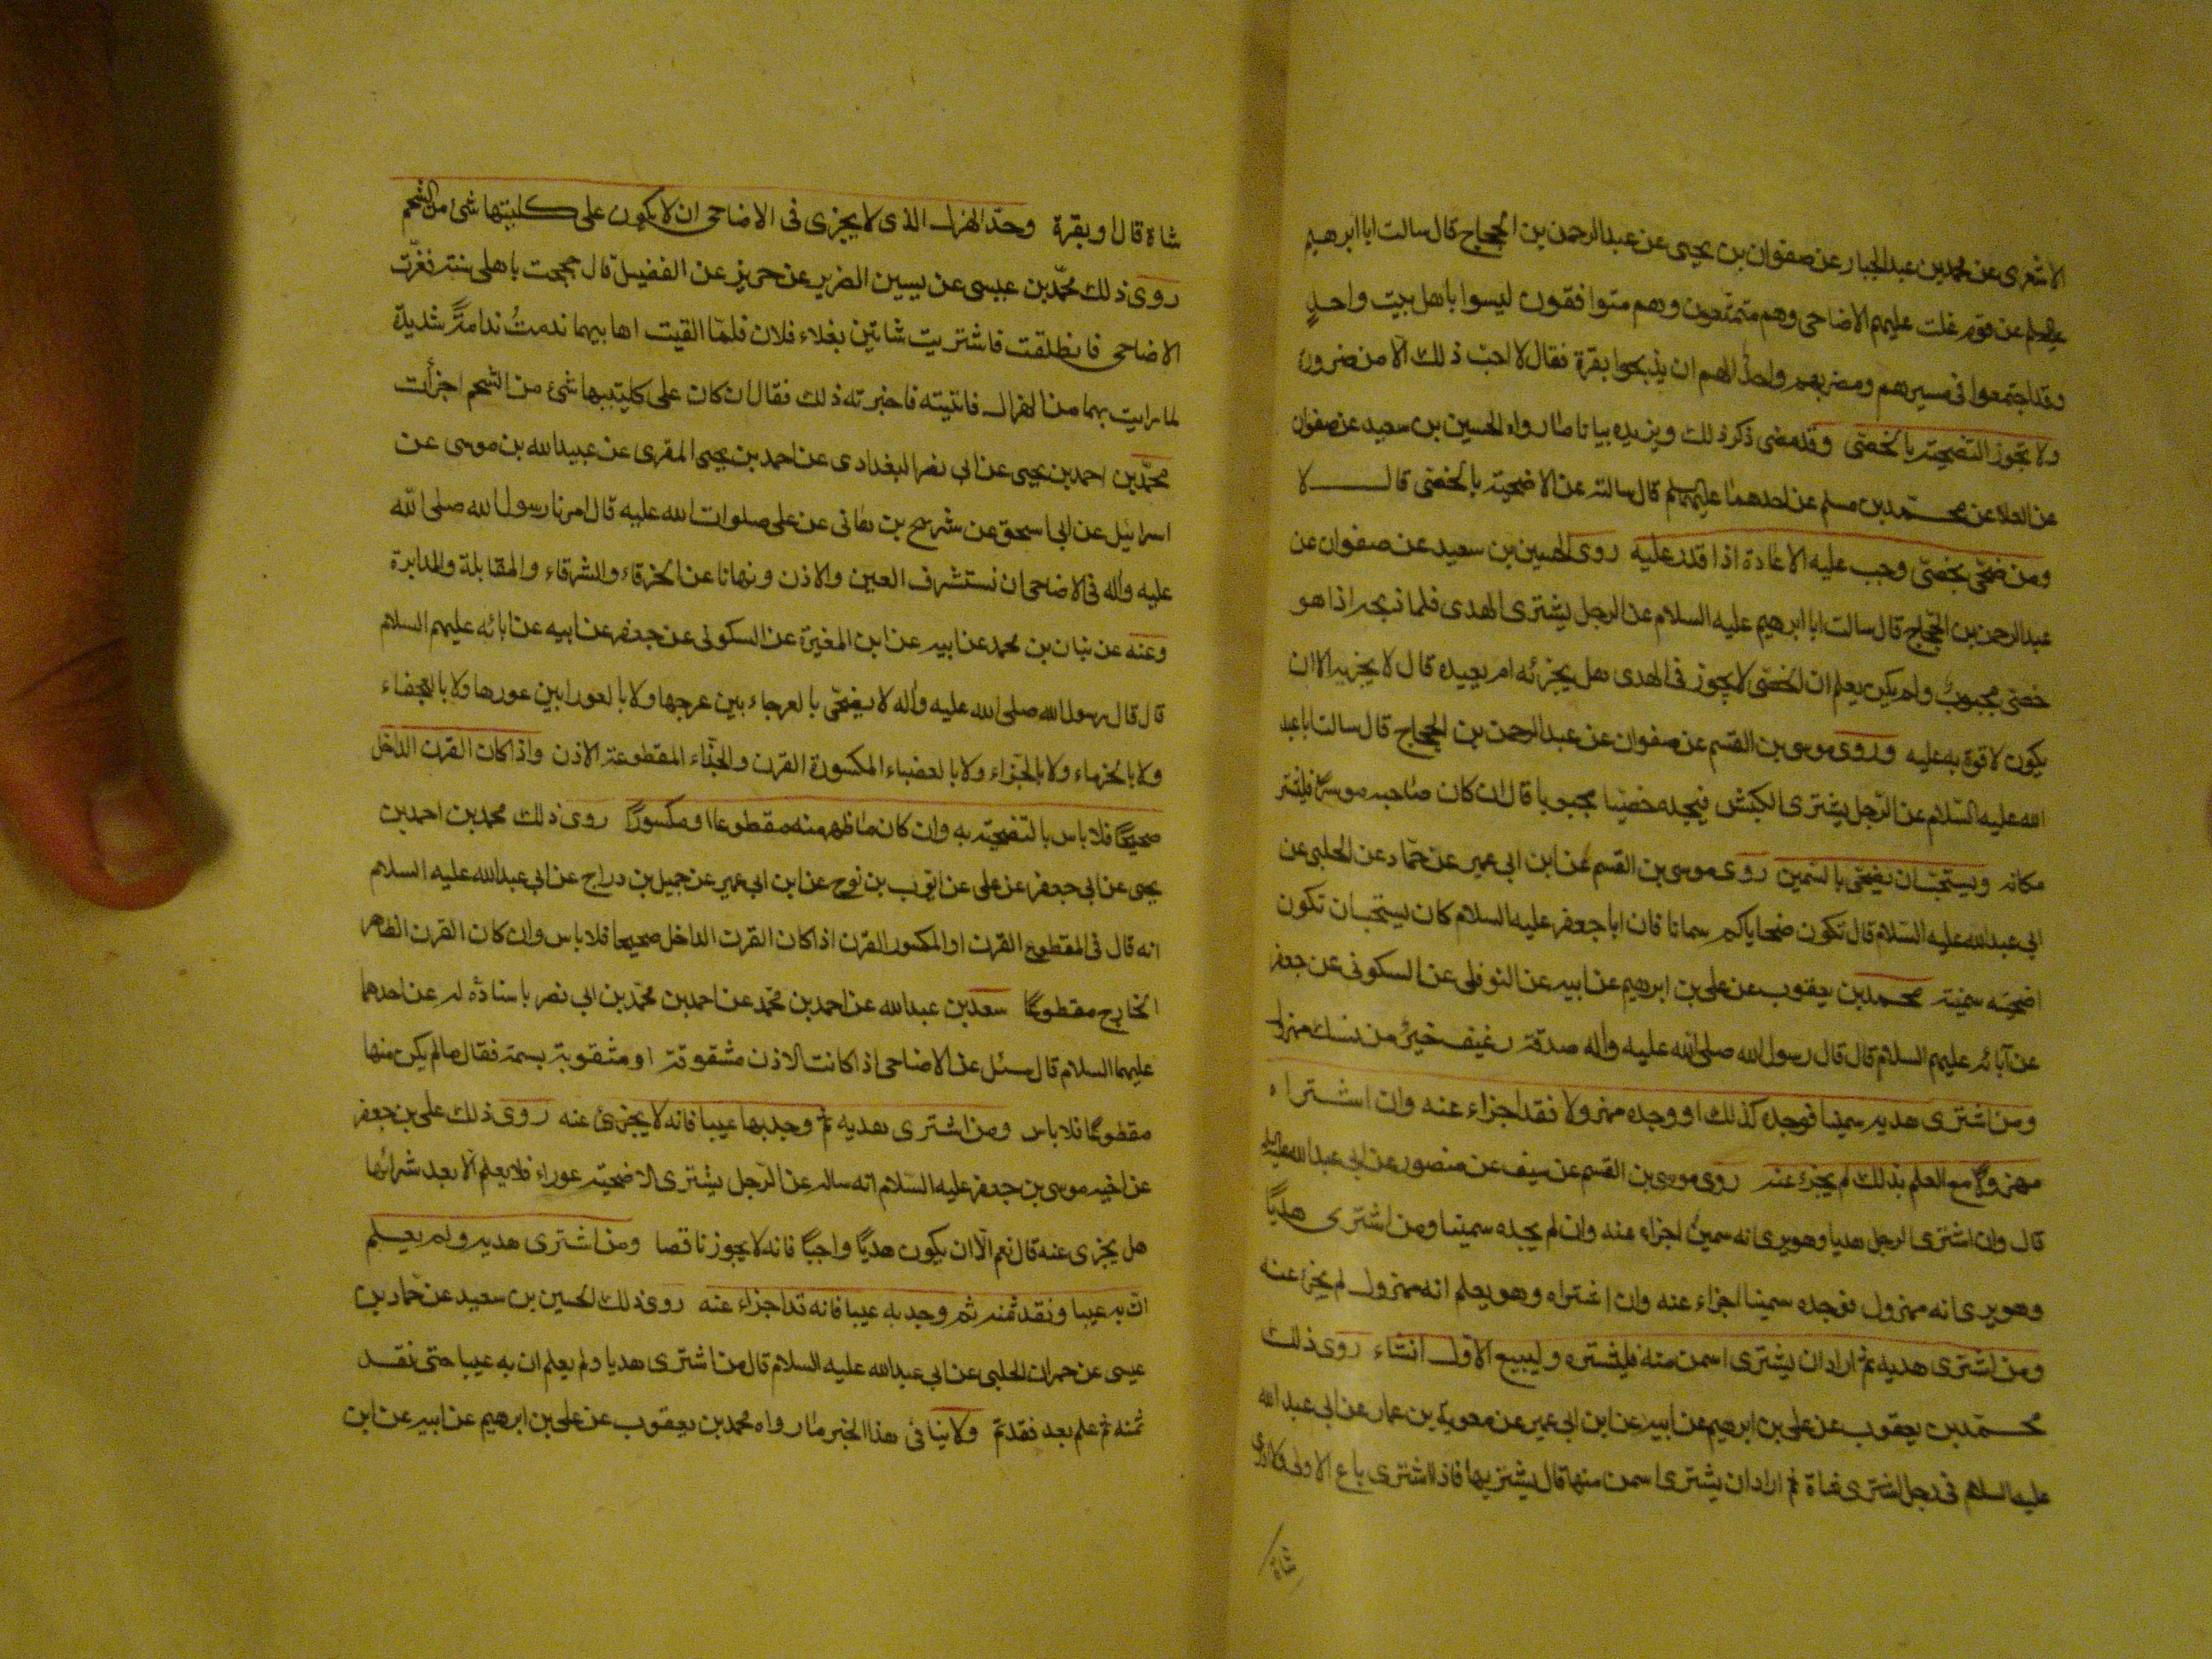 الاشعرى عن محمد بن عبد الجبار عن صفوان بن يحيى عن عبد الرحمن بن الحجاج قال سالت ابا ابرهيم
عليه السلام عن قوم غلت عليهم الاضاحى وهم متمتعون وهم متوافقون ليسوا باهل بيت واحدٍ
وقد اجتمعوا فى مسيرهم ومضربهم واحدٌ الهم ان يذبحوا بقرة فقال لا احب ذلك الا من ضرورة
ولا تجوز التضحية بالخصّى وقد مضى ذكر ذلك ويزيده بيانا ما رواه الحسين بن سعيد عن صفوان
عن العلا عن محمد بن مسلم عن احدهما عليهما السلم قال سالته عن الاضحية بالخصّى قال لا
ومن ضحّى بخصىّ وجب عليه الاعادة اذا قدر عليه روى الحسين بن سعيد عن صفوان عن
عبد الرحمن بن الحجّاج قال سالت ابا ابرهيم عليه السلام عن الرجل يشترى الهدى فلما ذبحه اذا هو
خصّى مجبوبٌ ولم يكن يعلم ان الخصّى لا يجوز فى الهدى هل يجزئه ام يعيده قال لا يجزيه الا ان
يكون لا قوة به عليه وروى موسى بن القسم عن صفوان عن عبد الرحمن بن الحجاج قال سالت ابا عبد
الله عليه السّلام عن الرّجل يشترى الكبش فيجده خصيّا مجبوبا قال ان كان صاحبه موسرًا فليشتر
مكانه ويستحبّ ان يضحّى بالسّمين روى موسى بن القسم عن ابن ابى عمير عن حمّاد عن الحلبى عن
ابى عبد الله عليه السّلام قال تكون ضحاياكم سمانا فان ابا جعفر عليه السلام كان يستحبّ ان تكون
اضحيّته سمينة محمد بن يعقوب عن على بن ابرهيم عن ابيه عن النوفلى عن السكونى عن جعفر
عن آبائه عليهم السلام قال قال رسول الله صلى الله عليه واله صدقة رغيف خيرٌ من نسك مهزول
ومن اشترى هديه سمينا فوجده كذلك او وجده مهزولا فقد اجزاء عنه وان اشتراه
مهزولًا مع العلم بذلك لم يجزء عنه روى موسى بن القسم عن سيف عن منصور عن ابى عبد الله عليه السلم
قال وان اشترى الرجل هديا وهو يرى انه سمينٌ اجزاء عنه وان لم يجده سمينا ومن اشترى هديًا
وهو يرى انه مهزول فوجده سمينا اجزاء عنه وان اشتراه وهو يعلم انه مهزول لم يجزء عنه
ومن اشترى هديه ثم اراد ان يشترى اسمن منه فليشتره وليبيع الاوّل ان شاء روى ذلك
محمّد بن يعقوب عن على بن ابرهيم عن ابيه عن ابن ابى عمير عن معوية بن عمار عن ابى عبد الله
عليه السلام فى رجل اشترى شاة ثم اراد ان يشترى اسمن منها قال يشتريها فاذا اشترى باع الاولى ولا ادرى
شاة
شاة قال او بقرة وحدّ الهزال الذى لا يجزى فى الاضاحى ان لا يكون على كليتيها شئ من الشحم
روى ذلك محمّد بن عيسى عن يسين الضرير عن حريز عن الفضيل قال حججت باهلى سنته فعزّت
الاضاحى فانطلقت فاشتريت شاتين بغلاء فلان فلمّا القيت اهابيهما ندمتُ ندامةً شديدة
لما رايت بهما من الهزال فاتيته فاخبرته ذلك فقال ان كان على كليتيهما شئ من الشحم اجزأت
محمّد بن احمد بن يحيى عن ابى نصر البغدادى عن احمد بن يحيى المقرى عن عبيد الله بن موسى عن
اسرائيل عن ابى اسحق عن شريح بن هانى عن على صلوات الله عليه قال امرنا رسول الله صلى الله
عليه واله فى الاضحى ان نستشرف العين والاذن ونهانا عن الخرقاء والشرقاء والمقابلة والمدابرة
وعنه عن بنان بن محمد عن ابيه عن ابن المغيرة عن السكونى عن جعفر عن ابيه عن ابائه عليهم السلام
قال قال رسول الله صلى الله عليه واله لا يضحّى بالعرجاء بين عرجها ولا بالعورا بين عورها ولا بالعجفاء
ولا بالخرماء ولا بالجزاء ولا بالعضباء المكسورة القرن والجذّاء المقطوعة الاذن واذا كان القرن الداخل
صحيحًا فلا باس بالتضحية به وان كان ما ظهر منه مقطوعا او مكسورًا روى ذلك محمد بن احمد بن
يحيى عن ابى جعفر عن على عن ايّوب بن نوح عن ابن ابى عمير عن جميل بن دراج عن ابى عبد الله عليه السلام
انه قال فى المقطوع القرن او المكسور القرن اذا كان القرن الداخل صحيحا فلا باس وان كان القرن الظاهر
الخارج مقطوعًا سعد بن عبد الله عن احمد بن محمّد عن احمد بن محمّد بن ابى نصر باسناده له عن احدهما
عليهما السلام قال سئل عن الاضاحى اذا كانت الاذن مشقوقة او مثقوبة بسمة فقال ما لم يكن منها
مقطوعًا فلا باس ومن اشترى هديه ثم وجد بها عيبا فانه لا يجزى عنه روى ذلك على بن جعفر
عن اخيه موسى بن جعفر عليه السّلام انه ساله عن الرّجل يشترى الاضحية عوراء فلا يعلم الّا بعد شرائها
هل يجزى عنه قال نعم الّا ان يكون هديًا واجبًا فانه لا يجوز ناقصا ومن اشترى هديه ولم يعلم
انّ به عيبا ونقد ثمنه ثم وجد به عيبا فانه قد اجزاء عنه روى ذلك الحسين بن سعيد عن حماد بن
عيسى عن عمران الحلبى عن ابى عبد الله عليه السلام قال من اشترى هديا ولم يعلم ان به عيبا حتى نقد
ثمنه ثم علم بعد فقد تم ولا ينافى هذا الخبر ما رواه محمد بن يعقوب عن على بن ابراهيم عن ابيه عن ابن